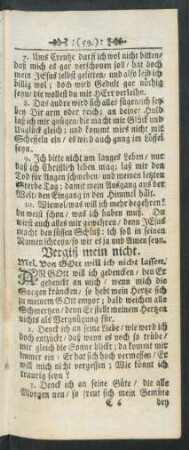 :(59.):
7. Ums Creutze darff ich wol nicht bitten/
daß mich es gar verschonen soll/ hat doch
mein JEsus selbst gelitten/ und also leid ich
billig wol; doch wird Gedult gar nöthig
seyn/ die wollest du mir HErr verleihn.
8. Das andre wird sich alles fügen/ ich sey
bey Dir arm oder reich; an deiner Huld
laß ich mir gnügen: die macht mir Glück und
Unglück gleich; und kommt mies nicht mit
Scheffeln ein/ es wird auch gnug im Löffel
seyn.
9. Ich bitte nicht um langes Leben/ nur
daß ich Christlich leben mag; laß mir den
Tod für Augen schweben/ und meinen letzten
Sterbe-Tag; damit mein Ausgang aus der
Welt/ den Eingang in den Himmel hält.
10. Jedoch was will ich mehr begehren?
du weist schon/ was ich haben muß. Du
wirst auch alles mir gewehren/ denn JEsus
macht den süssen Schluß: ich soll in seinem
Namen schreyn/ so wir es ja und Amen seyn.
Vergiß mein nicht.
Mel. Von GOtt will ich nicht lassen.
AN GOtt will ich gedencken/ den Er
gedenckt an mich/ wenn mich die
Sorgen kräncken/ so hebt mein Hertze sich
zu meinem GOtt empor; bald weichen alle
Schmertzen/ denn Er stellt meinem Hertzen
nichts als Vergnügung für.
2. Denck ich an seine Liebe/ wie werd ich
doch entzückt/ daß wenn es noch so trübe/
mir gleich die Sonne blickt; da kommt mir
immer ein: Er hat sich hoch vermessen/ Er
will mich nicht vergessen; Wie könnt ich
traurig seyn?
3. Denck ich an seine Güte/ die alle
Morgen neu/ so freut sich mein Gemüte
C 6 bey